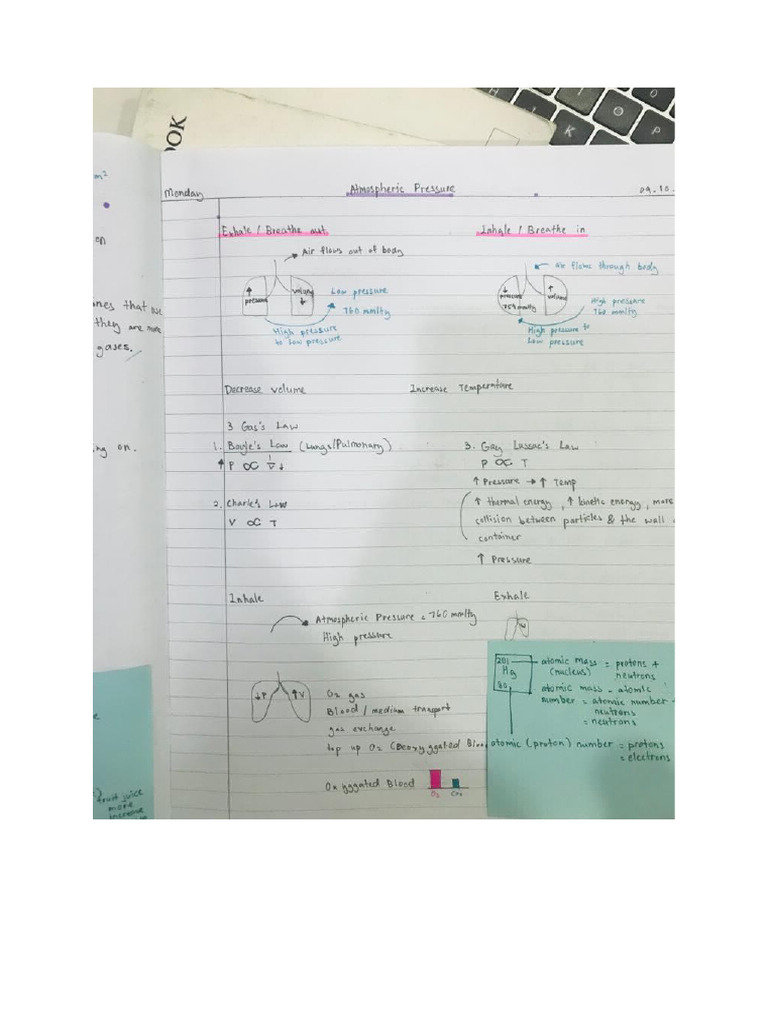 OOK
H
I
O
K
O
P
m²
on
they are more
gases.
ng on.
fruit juice
more
increase
Monday
Atmospheric Pressure
09.10.
Exhale / Breathe out
Air flows out of body
↑
pressure
volume
↓
Low pressure
760 mmHg
High pressure
to Low pressure
Inhale / Breathe in
Air flows through body
↓
pressure
759 mmHg
↑
volume
High pressure
760 mmHg
High pressure to
Low pressure
Decrease volume
Increase Temperature
3 Gas's Law
1. Boyle's Law (Lungs/Pulmonary)
↑ P ∝ 1/V ↓
2. Charle's Law
V ∝ T
3. Gay Lussac's Law
P ∝ T
↑ Pressure → ↑ Temp
↑ thermal energy, ↑ kinetic energy, more
collision between particles & the wall
container
↑ Pressure
Inhale
Atmospheric Pressure = 760 mmHg
High pressure
↓P ↑V
O₂ gas
Blood / medium transport
gas exchange
top up O₂ (Deoxyggated Blood
Oxyggated Blood
O₂ CO₂
Exhale
201
Hg
80
atomic mass = protons +
(nucleus) neutrons
atomic mass - atomic
number = atomic number +
neutrons
= neutrons
atomic (proton) number = protons
= electrons